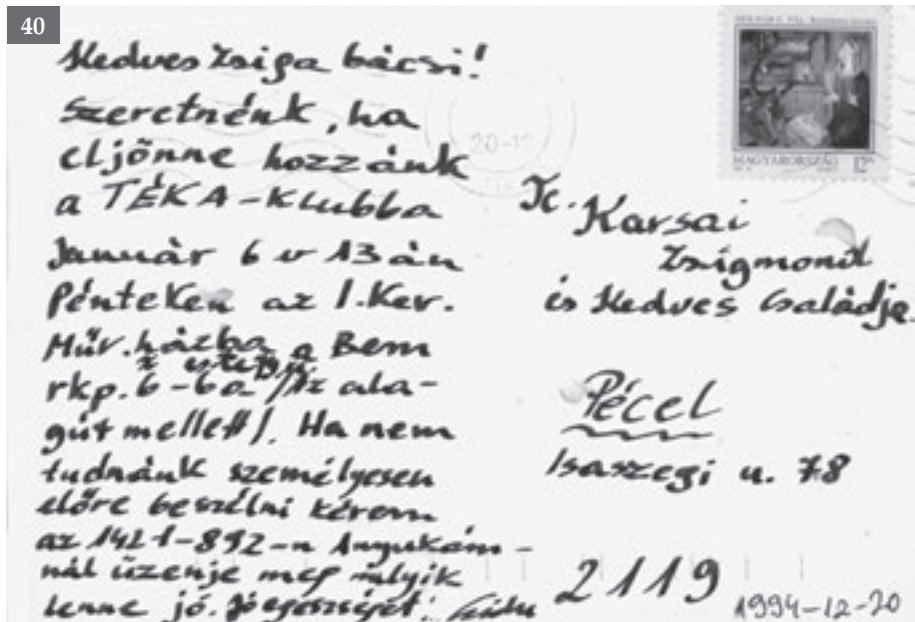 40
Kedves Zsiga bácsi!
Szeretnénk, ha
eljönne hozzánk
a TÉKA-Klubba
Január 6 v 13 án
Pénteken az I. Ker.
Műv. házba a Bem
rkp. 6-6a /Az ala-
gút mellett/. Ha nem
tudnánk személyesen
előre beszélni kérem
az 1421-892-n Anyukám-
nál üzenje meg melyik
lenne jó. Jó egészséget!
MAGYARORSZÁG
12
20-12
Karsai
Zsigmond
és Kedves Családja
Pécel
Isaszegi u. 78
2119
1994-12-20